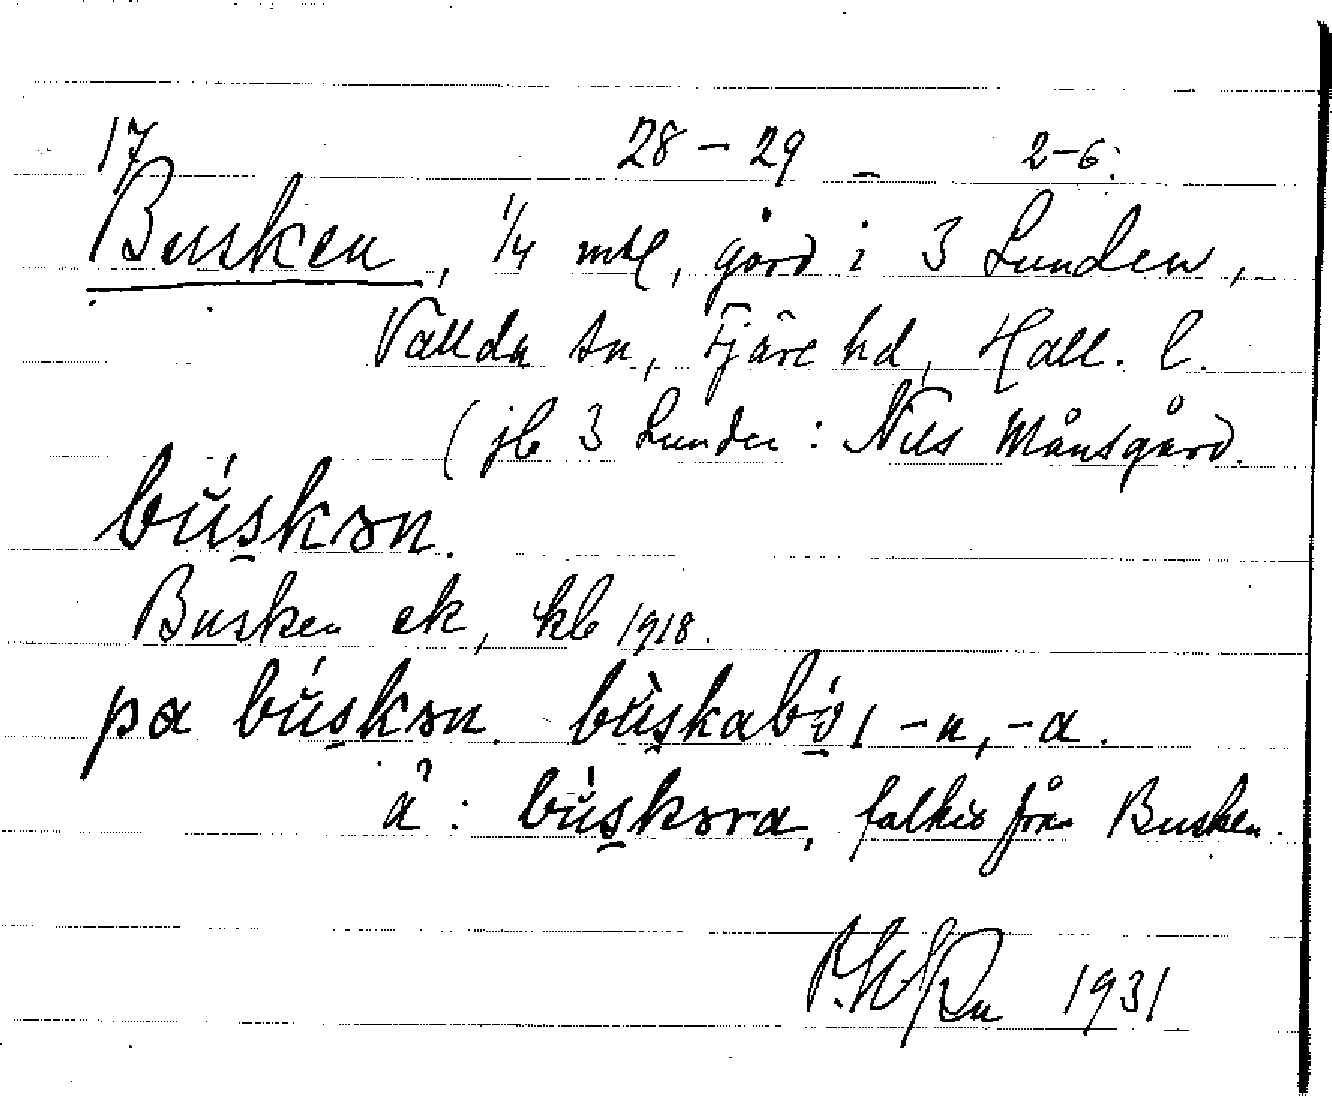 17 28–29 – 2–6.
Busken, 1/4 mtl, gård i 3 Lunden,
Vallda sn, Fjäre hd, Hall. l.
(jb 3 Lunden: Nils Månsgård.
bús̯kən.
Busken ek, kb 1918.
pα bús̯kən. bùs̯kabó̯, -n, -a.
ä: bús̯kəra, folket från Busken.
1931